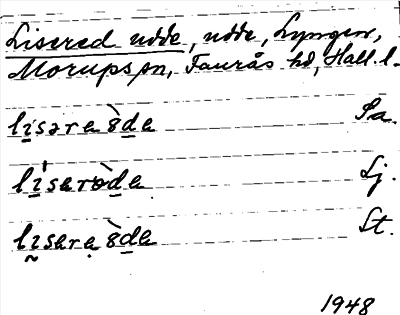 Lisered udde, udde, Lyngen,
Morups sn, Faurås hd, Hall. l.
lisəre ò̤de Sa.
lísəròde Lj.
lisere ò̤de St.
1948